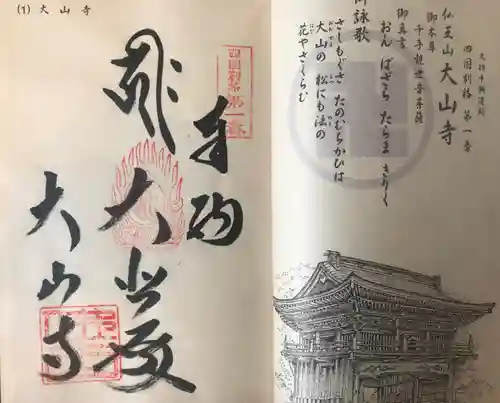 (1) 大山寺
四国別格
第一番
奉納
大悲殿
大山寺
大師御遺跡
四国別格 第一番
仏王山 大山寺
御本尊
千手観世音菩薩
御真言
おん ばざら たらま きりく
御詠歌
さしもぐさ たのむちかひは
大山の 松にも法の
花やさくらむ